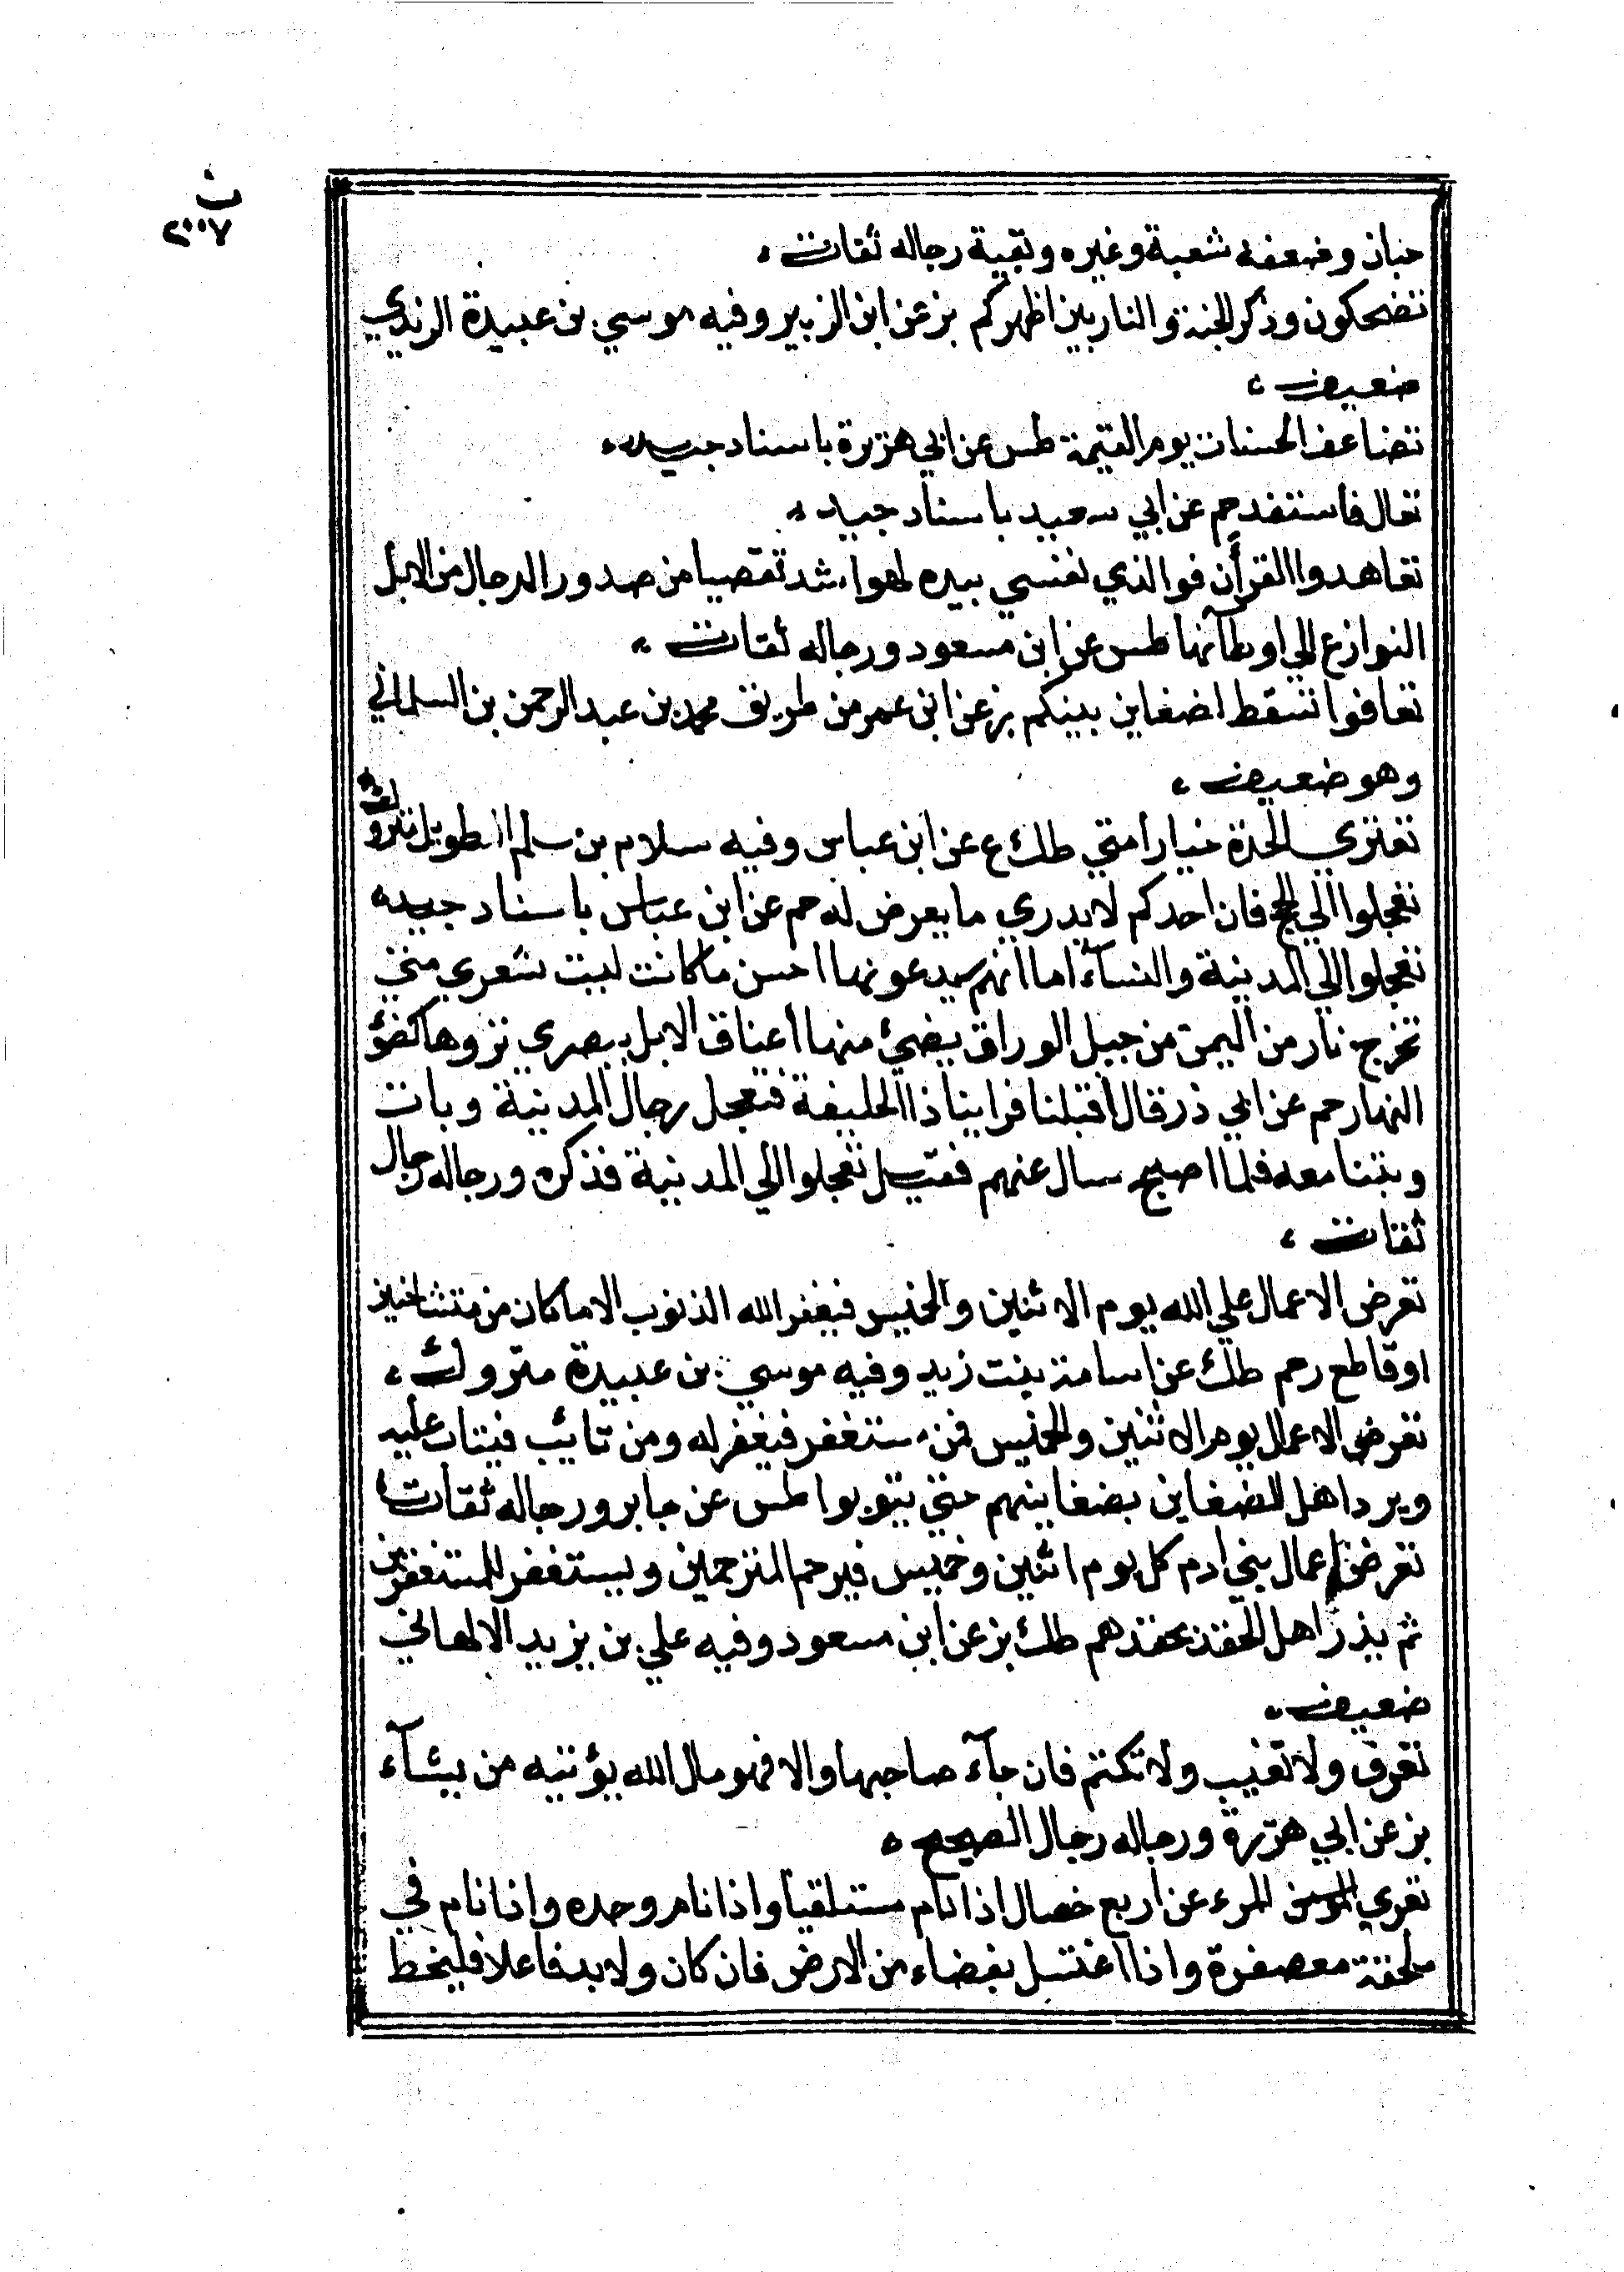 ب
٢٠٠٧
حبان وضعفه شعبة وغيره وبقية رجاله ثقات،
تضحكون وذكر الجنة والنار بين اظهركم بز عن ابن الزبير وفيه موسي بن عبيدة الزندي
ضعيف،
تضاعف الحسنات يوم القيمة طس عن ابي هريرة باسناد جيد،
تعال فاستقد حم عن ابي سعيد باسناد جيد،
تعاهدوا القرأن فوالذي نفسي بيده لهوا شد تقصيا من صدور الرجال من الابل
النوازع الي اوطآنها طس عن ابن مسعود ورجاله ثقات،
تعافوا تسقط اضغاين بينكم بز عن ابن عمر من طريف محمد بن عبد الرحمن بن السلماني
وهو ضعيف،
تعتري الحدة خيار امتي طك ع عن ابن عباس وفيه سلام بن سلم الطويل متروك
تعجلوا الي الحج فان احدكم لا يدري ما يعرض له حم عن ابن عباس باسناد جيد،
تعجلوا الي المدينة والنسآء اما انهم سيدعونها احسن ما كانت ليت شعري متي
تخرج نار من اليمن من جبل الوراق يضيئ منها أعناق الابل ببصري نزوها كضؤ
النهار حم عن ابي ذر قال اقبلنا فراينا ذا الحليفة فتعجل رجال المدينة وبات
وبتنا معه فلما اصبح سال عنهم فقيل تعجلوا الي المدينة فذكره ورجاله رجال
ثقات،
تعرض الاعمال علي الله يوم الاثنين والخميس فيغفر الله الذنوب الا ما كان من متشاحنين
او قاطع رحم طك عن اسامة بنت زيد وفيه موسي بن عبيدة متروك،
تعرض الاعمال يوم الاثنين والخميس فمن ستغفر فيغفر له ومن تايب فيتاب عليه
ويرد اهل الضغاين بضغاينهم حتي يتوبوا طس عن جابر ورجاله ثقات
تعرض اعمال بني ادم كل يوم اثنين وخميس فيرحم المترحمين ويستغفر للمستغفرين
ثم يذر اهل الحقد بحقدهم طك بز عن ابن مسعود وفيه علي بن يزيد الالهاني
ضعيف،
تعرف ولا تغيب ولا تكتم فان جآء صاحبها والا فهو مال الله يؤتيه من يشآء
بز عن ابي هريرة ورجاله رجال الصحيح،
تعري المرء عن اربع خصال اذا نام مستلقيا واذا نام وحده واذا نام في
ملحفة معصفرة واذا اغتسل بفضاء من الارض فان كان ولا بد فاعلا فليخط